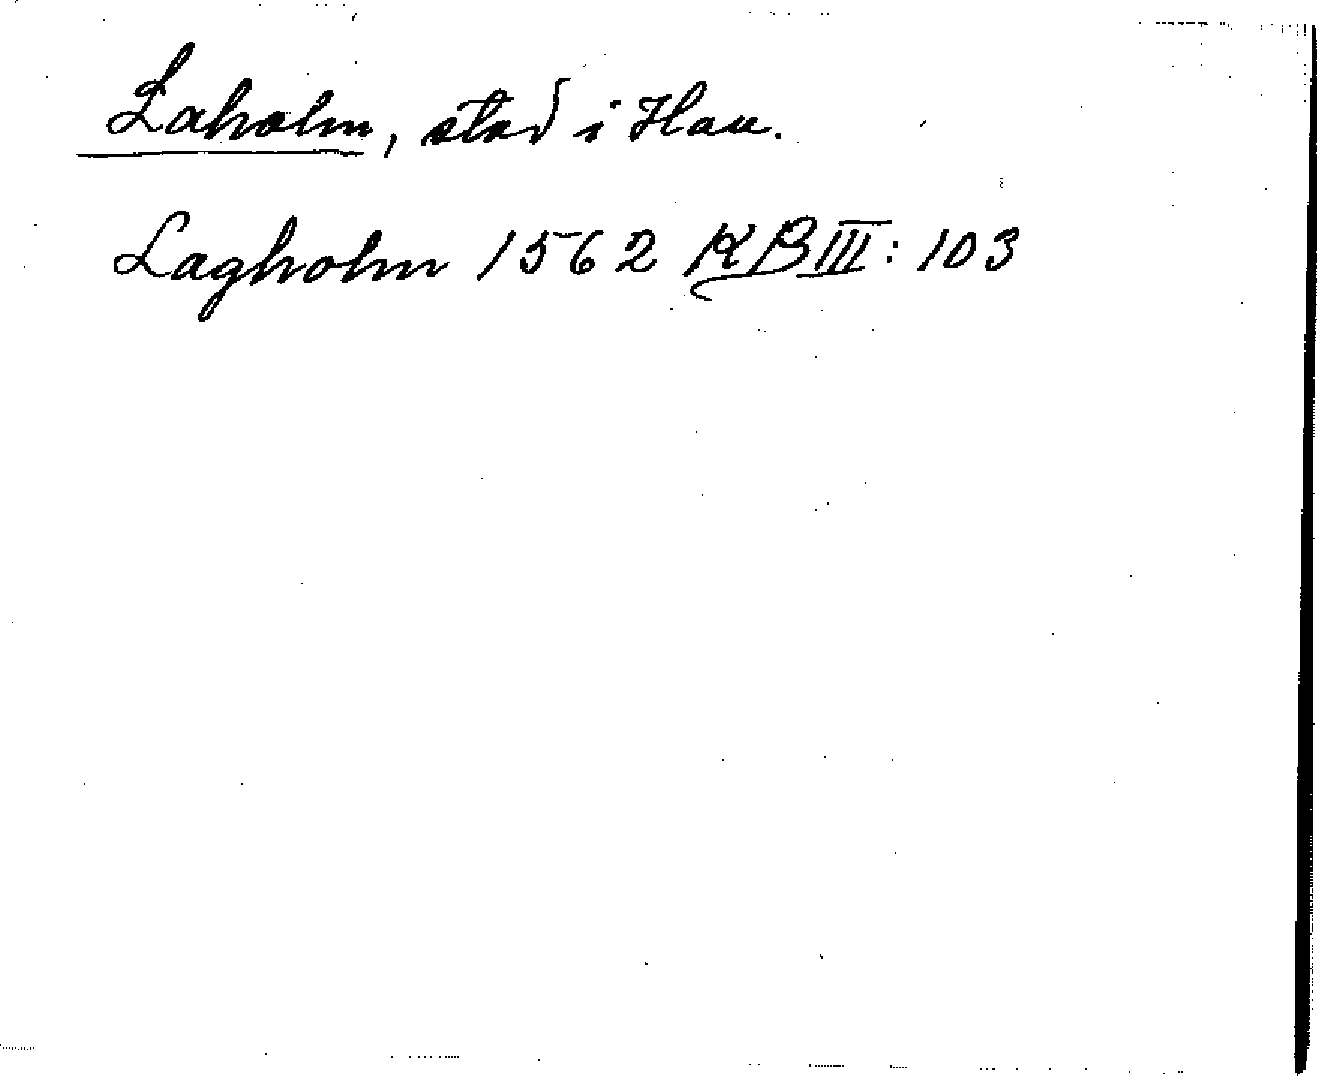 Laholm, stad i Hall.
Lagholm 1562 KB III: 103